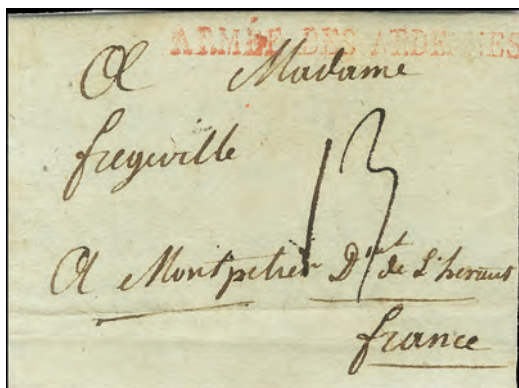 ARMÉE DES ARDENNES
A Madame
fregeville
13
A Montpelier Dᵗ de L'heraut
france